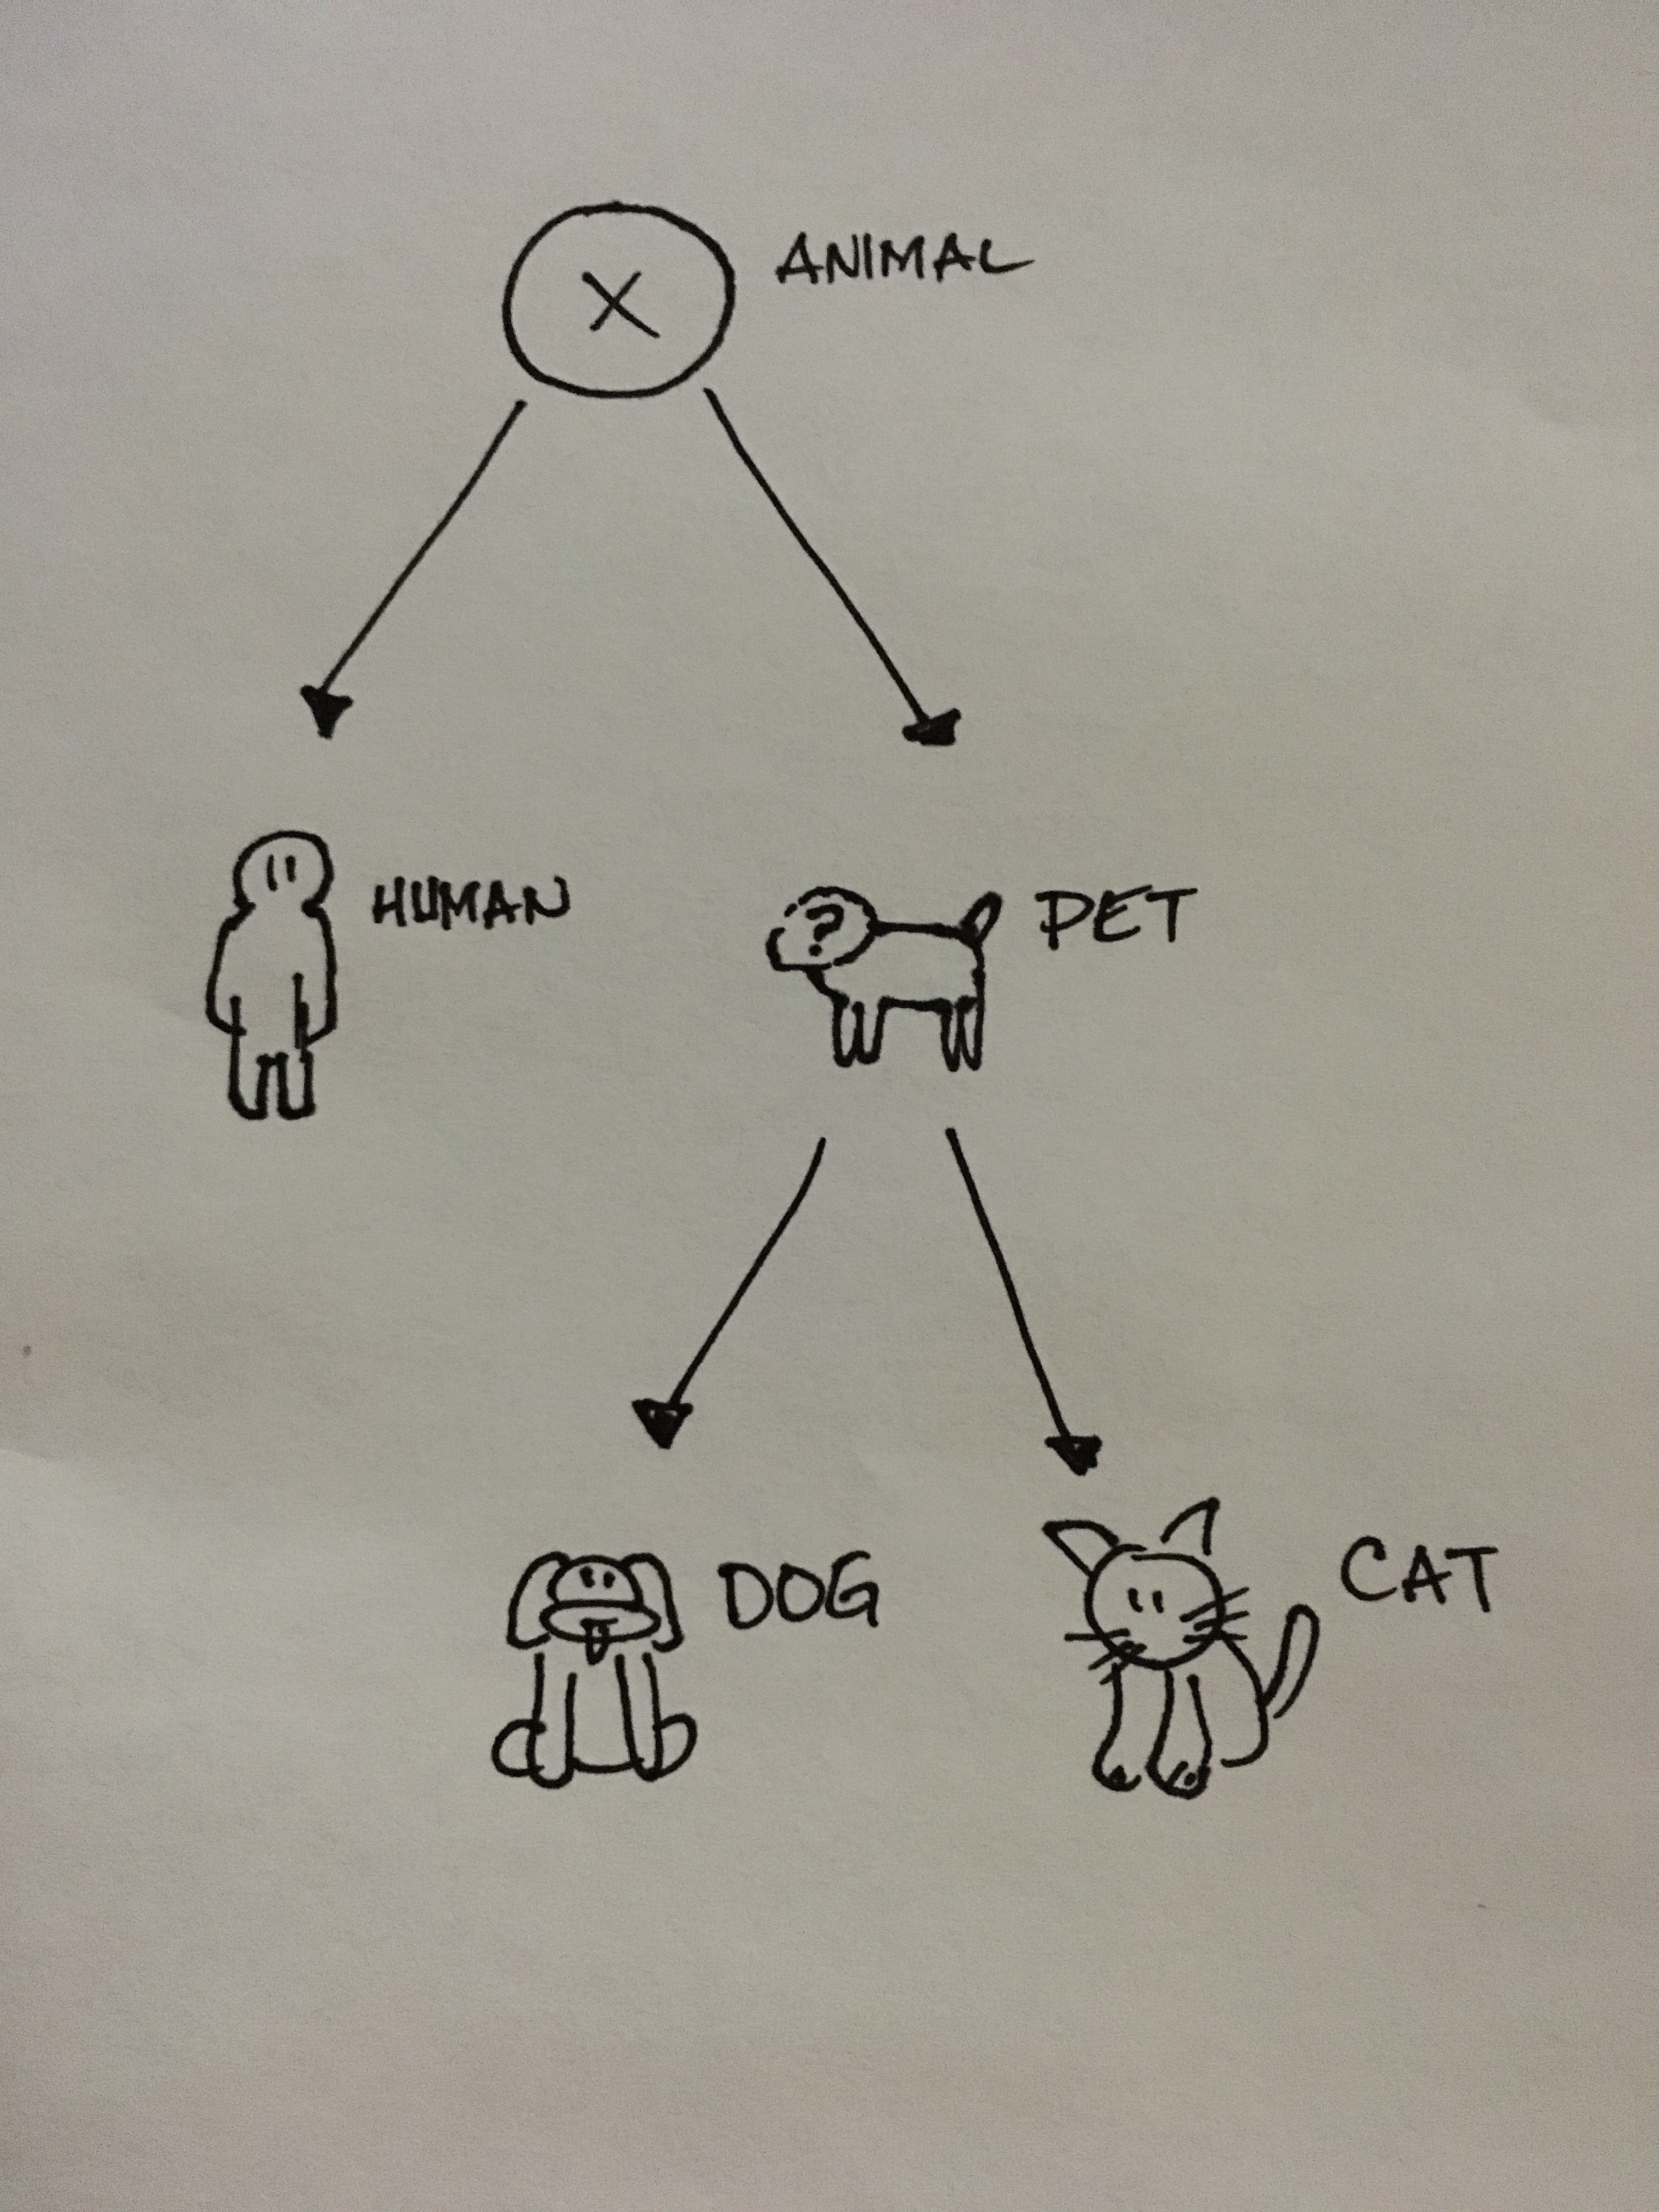 X
ANIMAL
HUMAN
?
PET
DOG
CAT